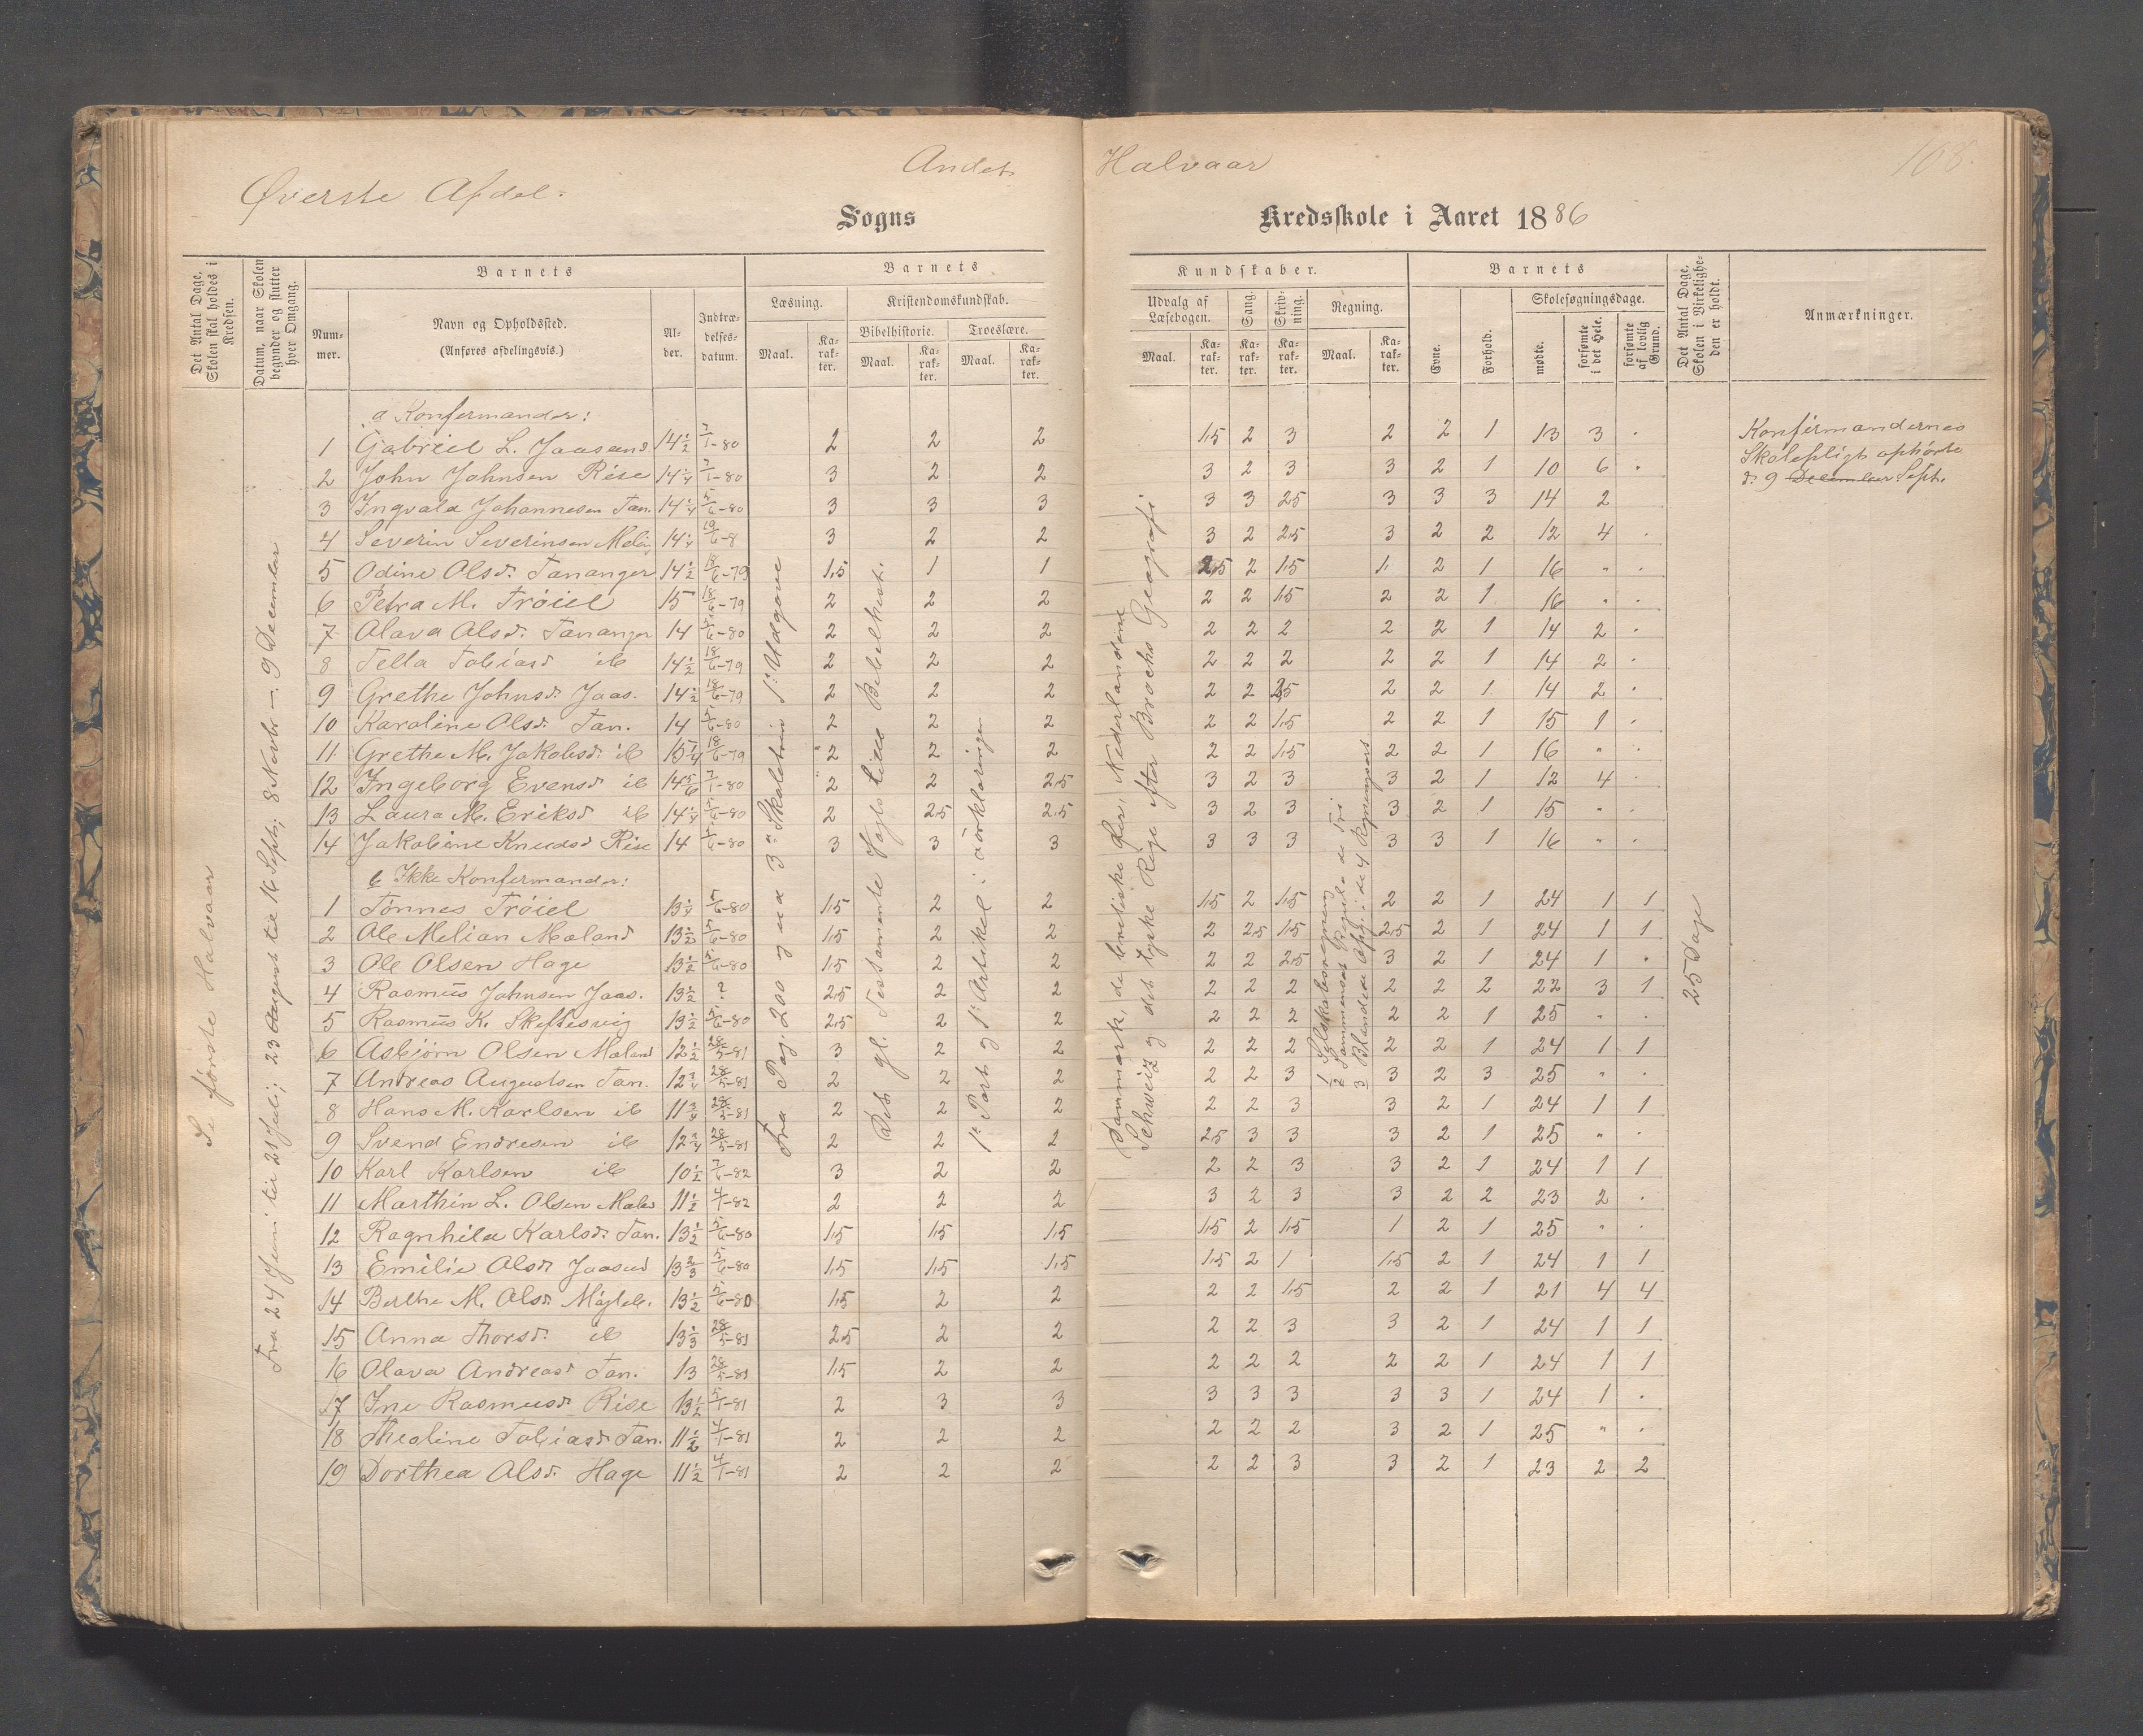 Andet Halvaar
108.
Øverste Afdel.
Sogns Kredsskole i Aaret 1886
Det Antal Dage, Skolen skal holdes i Kredsen.
Datum, naar Skolen begynder og slutter hver Omgang.
Barnets
Nummer.
Navn og Opholdssted.
(Anføres afdelingsvis.)
Alder.
Indtrædelsesdatum.
Barnets Kundskaber.
Læsning.
Maal.
Karakter.
Kristendomskundskab.
Bibelhistorie.
Maal.
Karakter.
Troeslære.
Maal.
Karakter.
Udvalg af Læsebogen.
Maal.
Karakter.
Sang.
Karakter.
Skrivning.
Karakter.
Regning.
Maal.
Karakter.
Barnets
Evne.
Forhold.
Skolesøgningsdage.
mødte.
forsømte i det Hele.
forsømte af lovlig Grund.
Det Antal Dage, Skolen i Virkeligheden er holdt.
Anmærkninger.
Se første Halvaar
Fra 24 Juni til 21 Juli; 23 August til 16 Septr; 8 Novbr — 9 December
Fra Pag. 200 og ud 3die Skoletrin 1ste Udgave
Det gl. Testamente Vogts lille Bibelhist.
1ste Part og 1ste Artikel i Forklaringen
Danmark, de brittiske Øer, Nederlandene
Schweiz og det tyske Rige efter Brochs Geografi
1 Selskabsregning
2 Sammensat Regula de Tri
3 Blandede Opg. i de 4 Regningsart
25 Dage
a Konfermander:
1 Gabriel L. Jaasund 14 1/2 7/1-80 2 2 2 1,5 2 3 2 2 1 13 3 .
2 John Johnsen Rise 14 1/4 7/1-80 3 2 2 3 2 3 3 2 1 10 6 .
3 Ingvald Johannesen Tan. 14 1/4 5/6-80 3 3 3 3 3 2,5 3 3 3 14 2
4 Severin Severinsen Meling 14 1/4 19/6-8 3 2 2 3 2 2,5 3 2 2 12 4 .
5 Odine Olsd. Tananger 14 1/2 18/6-79 1,5 1 1 2,5 2 1,5 1. 2 1 16 " .
6 Petra M. Trøiel 15 18/6-79 2 2 2 2 2 1,5 2 2 1 16 " .
7 Olava Olsd. Tananger 14 5/6-80 2 2 2 2 2 2 2 2 1 14 2 .
8 Tella Tobiasd ib 14 1/2 18/6-79 2 2 2 2 2 2 2 2 1 14 2 .
9 Grethe Johnsd. Jaas. 14 1/2 18/6-79 2 2 2 2 2 2,5 2 2 1 14 2 .
10 Karoline Olsd. Tan. 14 5/6-80 2 2 2 2 2 1,5 2 2 1 15 1 .
11 Grethe M. Jakobsd. ib 15 1/4 18/6-79 2 2 2 2 2 1,5 2 2 1 16 " .
12 Ingeborg Evensd ib 14 5/6 7/1-80 2 2 2,5 3 2 3 3 2 1 12 4 .
13 Laura M. Eriksd ib 14 1/4 5/6-80 2 2,5 2,5 3 2 3 3 2 1 15 " .
14 Jakobine Knudsd Rise 14 5/6-80 3 3 3 3 3 3 3 3 1 16 " .
b Ikke Konfermander:
1 Tønnes Trøiel 13 1/4 5/6-80 1,5 2 2 1,5 2 1,5 2 2 1 24 1 1
2 Ole Melian Maland 13 1/2 5/6-80 1,5 2 2 2 2,5 1,5 2,5 2 1 24 1 1
3 Ole Olsen Hage 13 1/2 5/6-80 1,5 2 2 2 2 2,5 3 2 1 24 1 .
4 Rasmus Johnsen Jaas. 13 1/2 ? 2,5 2 2 2 2 2 2 2 2 22 3 1
5 Rasmus K. Skiftesvig 13 1/2 5/6-80 2,5 2 2 2 2 2 2 2 1 25 " .
6 Asbiørn Olsen Maland 12 1/2 28/5-81 3 2 2 2 2 2 2 2 1 24 1 1
7 Andreas Augustsen Tan. 12 3/4 28/5-81 2 2 2 2 2 3 3 2 3 25 " .
8 Hans M. Karlsen ib 11 3/4 28/5-81 2 2 2 2 2 3 3 2 1 24 1 1
9 Svend Endresen ib 12 3/4 28/5-81 2 2 2 2,5 3 3 3 2 1 25 " .
10 Karl Karlsen ib 10 1/2 7/6-82 3 2 2 2 2 3 3 2 1 24 1 1
11 Marthin L. Olsen Maland 11 1/2 4/1-82 2 2 2 3 2 3 3 2 2 23 2 .
12 Ragnhild Karlsd. Tan. 13 1/2 5/6-80 1,5 1,5 1,5 1,5 2 1,5 1 2 1 25 " .
13 Emilie Olsd Jaasund 13 2/3 5/6-80 1,5 1,5 1,5 1,5 2 1 1,5 2 1 24 1 1
14 Berthe M. Olsd. Mygleb. 13 1/2 5/6-80 1,5 2 2 2 2 1,5 2 2 1 21 4 4
15 Anna Thorsd. ib 13 1/3 28/5-81 2,5 2 2 2 2 3 3 2 1 24 1 1
16 Olava Andreasd Tan. 13 28/5-81 1,5 2 2 2 2 2 2 2 1 24 1 1
17 Ine Rasmusd. Rise 13 1/2 5/1-81 2 3 3 3 3 3 3 3 1 24 1 .
18 Theoline Tobiasd. Tan. 11 1/2 4/1-81 2 2 2 2 2 2 3 2 1 25 " .
19 Dorthea Olsd. Hage 11 1/2 4/1-81 2 2 2 2 2 3 3 2 1 23 2 2
Konfirmandernes
Skolepligt ophørte
d. 9 December Sept.